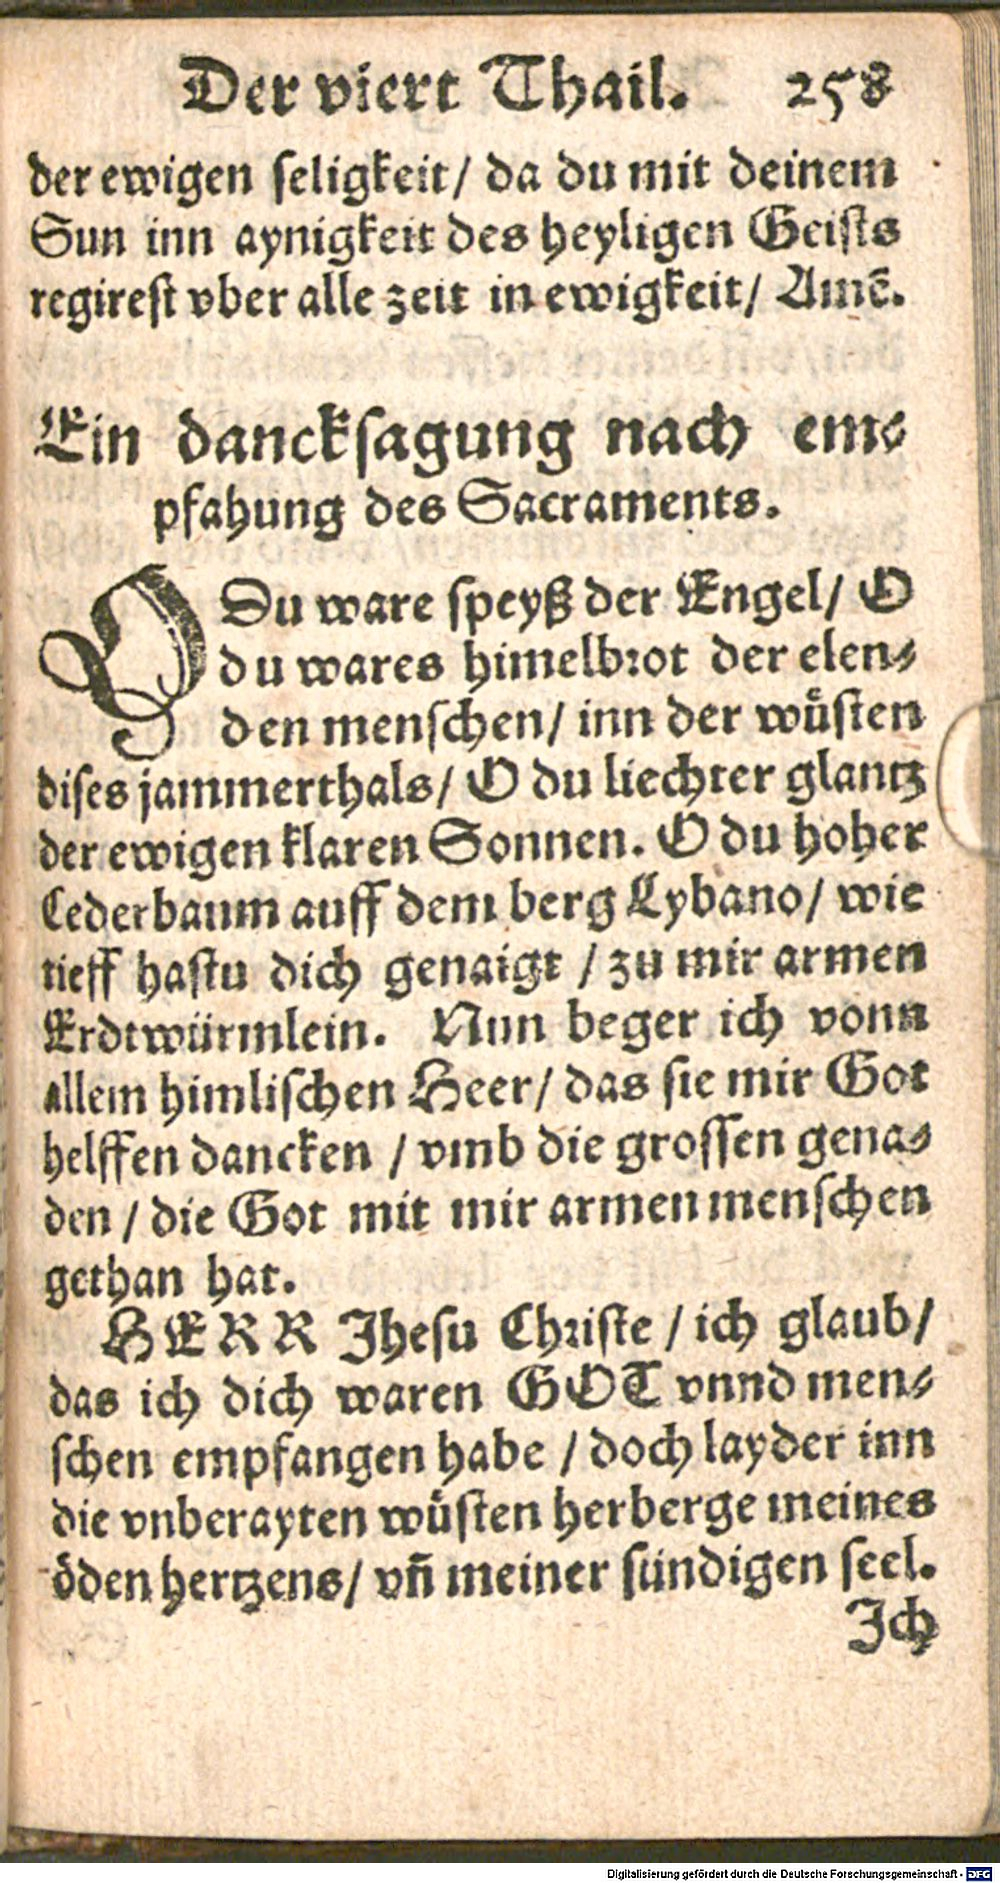 Der viert Thail. 258
der ewigen seligkeit/ da du mit deinem
Sun inn aynigkeit des heyligen Geists
regirest vber alle zeit in ewigkeit/ Amẽ.
Ein dancksagung nach em-
pfahung des Sacraments.
O Du ware speyß der Engel/ O
du wares himelbrot der elen-
den menschen/ inn der wuͤsten
dises jammerthals/ O du liechter glantz
der ewigen klaren Sonnen. O du hoher
Cederbaum auff dem berg Lybano/ wie
tieff hastu dich genaigt / zu mir armen
Erdtwürmlein. Nun beger ich vonn
allem himlischen Heer/ das sie mir Got
helffen dancken / vmb die grossen gena-
den / die Got mit mir armen menschen
gethan hat.
HERR Jhesu Christe / ich glaub/
das ich dich waren GOT vnnd men-
schen empfangen habe / doch layder inn
die vnberayten wuͤsten herberge meines
oͤden hertzens/ vñ meiner sündigen seel.
Jch
Digitalisierung gefördert durch die Deutsche Forschungsgemeinschaft - DFG